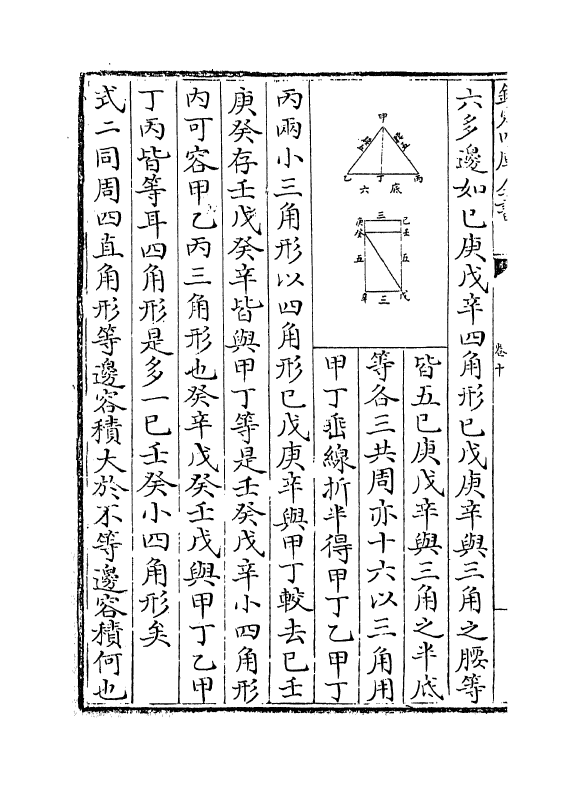 卷十
六多邊如已庚戊辛四角形已戊庚辛與三角之腰等
甲
乙 丁 丙
六 底
三
庚 已
癸 壬
五 五
辛 三 戊
皆五已庚戊辛與三角之半底
等各三共周亦十六以三角用
甲丁垂線折半得甲丁乙甲丁
丙兩小三角形以四角形已戊庚辛與甲丁較去已壬
庚癸存壬戊癸辛皆與甲丁等是壬癸戊辛小四角形
內可容甲乙丙三角形也癸辛戊癸壬戊與甲丁乙甲
丁丙皆等耳四角形是多一已壬癸小四角形矣
式二同周四直角形等邊容積大於不等邊容積何也